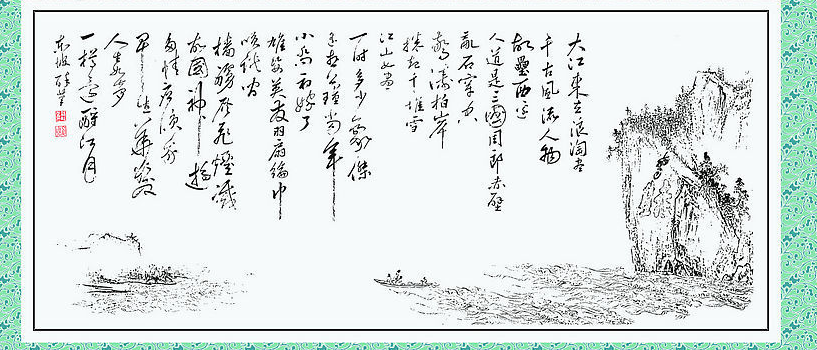 大江東去浪淘尽
千古風流人物
故壘西边
人道是三國周郎赤壁
乱石穿空
惊濤拍岸
捲起千堆雪
江山如画
一时多少豪傑
遥想公瑾当年
小乔初嫁了
雄姿英发羽扇綸巾
笑谈间
樯櫓灰飛煙滅
故國神遊
多情应笑我
早生華发
人生如梦
一樽還酹江月
东坡